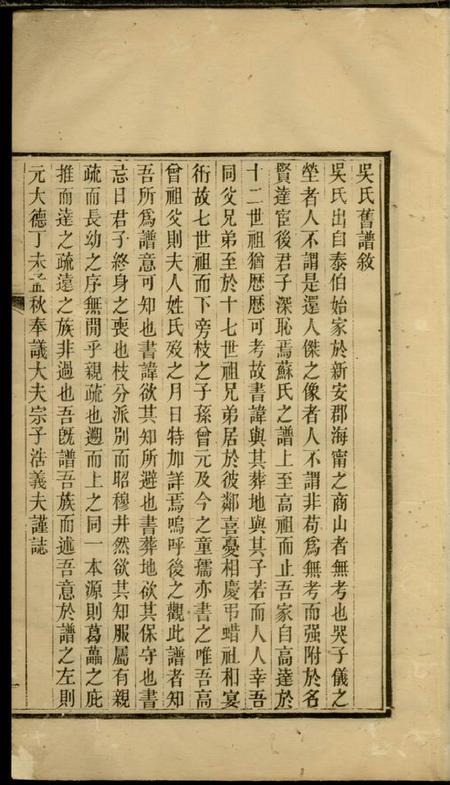 吳氏舊譜敘
吳氏出自泰伯始家於新安郡海甯之商山者無考也哭子儀之
塋者人不謂是還人傑之像者人不謂非苟爲無考而强附於名
賢達宦後君子深恥焉蘇氏之譜上至高祖而止吾家自高達於
十二世祖猶歷歷可考故書諱與其葬地與其子若而人人幸吾
同父兄弟至於十七世祖兄弟居於彼鄰喜憂相慶弔蜡社相宴
衎故七世祖而下旁枝之子孫曾元及今之童孺亦書之唯吾高
曾祖父則夫人姓氏歿之月日特加詳焉嗚呼後之觀此譜者知
吾所爲譜意可知也書諱欲其知所避也書葬地欲其保守也書
忌日君子終身之喪也枝分派別而昭穆井然欲其知服屬有親
疏而長幼之序無閒乎親疏也遡而上之同一本源則葛藟之庇
推而達之疏遠之族非過也吾旣譜吾族而述吾意於譜之左則
元大德丁未孟秋奉議大夫宗子浩義夫謹誌